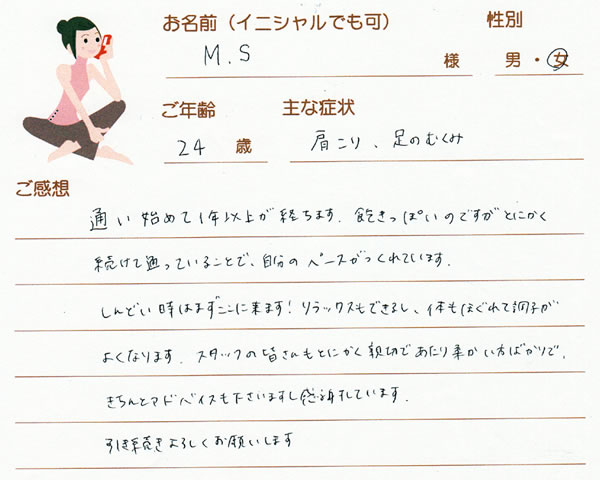 お名前（イニシャルでも可） 性別
M.S 様 男・女
ご年齢 主な症状
24 歳 肩こり、足のむくみ
ご感想
通い始めて1年以上が経ちます。飽きっぽいのですがとにかく
続けて通っていることで、自分のペースがつくれています。
しんどい時はまずここに来ます！リラックスもできるし、体もほぐれて調子が
よくなります。スタッフの皆さんもとにかく親切であたり柔かい方ばかりで、
きちんとアドバイスも下さいますし感謝しています。
引き続きよろしくお願いします